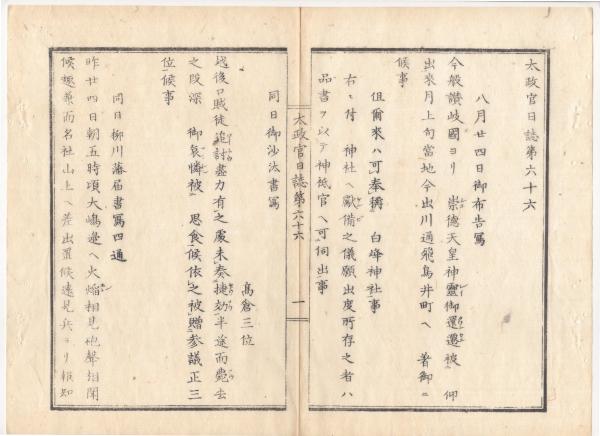 太政官日誌第六十六
八月廿四日御布告寫
今般讃岐國ヨリ 崇德天皇神靈御還遷被 仰
出來月上旬當地今出川通飛鳥井町ヘ 著御ニ
候事
但爾來ハ可奉稱 白峰神社事
右ニ付 神社ヘ獻備之儀願出度所存之者ハ
品書ヲ以テ神祇官ヘ可伺出事
太政官日誌第六十六 一
同日御沙汰書寫
高倉三位
越後口賊徒追討盡力有之處未奏捷効半途而斃去
之段深 御哀憐被 思食候依之被贈參議正三
位候事
同日柳川藩届書寫四通
昨廿四日朝五時頃大嶋邊ヘ火焔相見砲聲相聞
候趣兼而名社山上ヘ差出置候遠見兵ヨリ報知